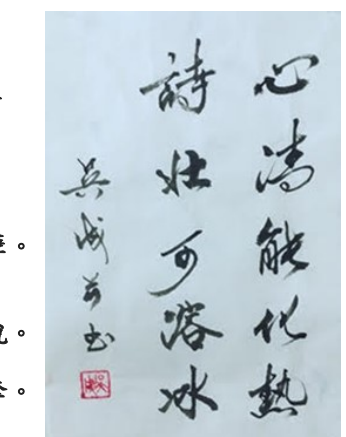 心清能化熱
詩壯可溶冰
吳成書